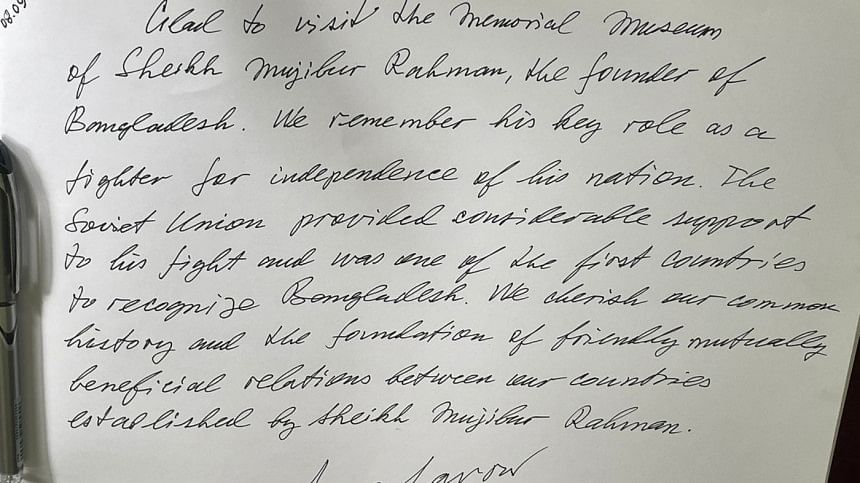 08.09
Glad to visit the Memorial Museum
of Sheikh Mujibur Rahman, the founder of
Bangladesh. We remember his key role as a
fighter for independence of his nation. The
Soviet Union provided considerable support
to his fight and was one of the first countries
to recognize Bangladesh. We cherish our common
history and the foundation of friendly mutually
beneficial relations between our countries
established by Sheikh Mujibur Rahman.